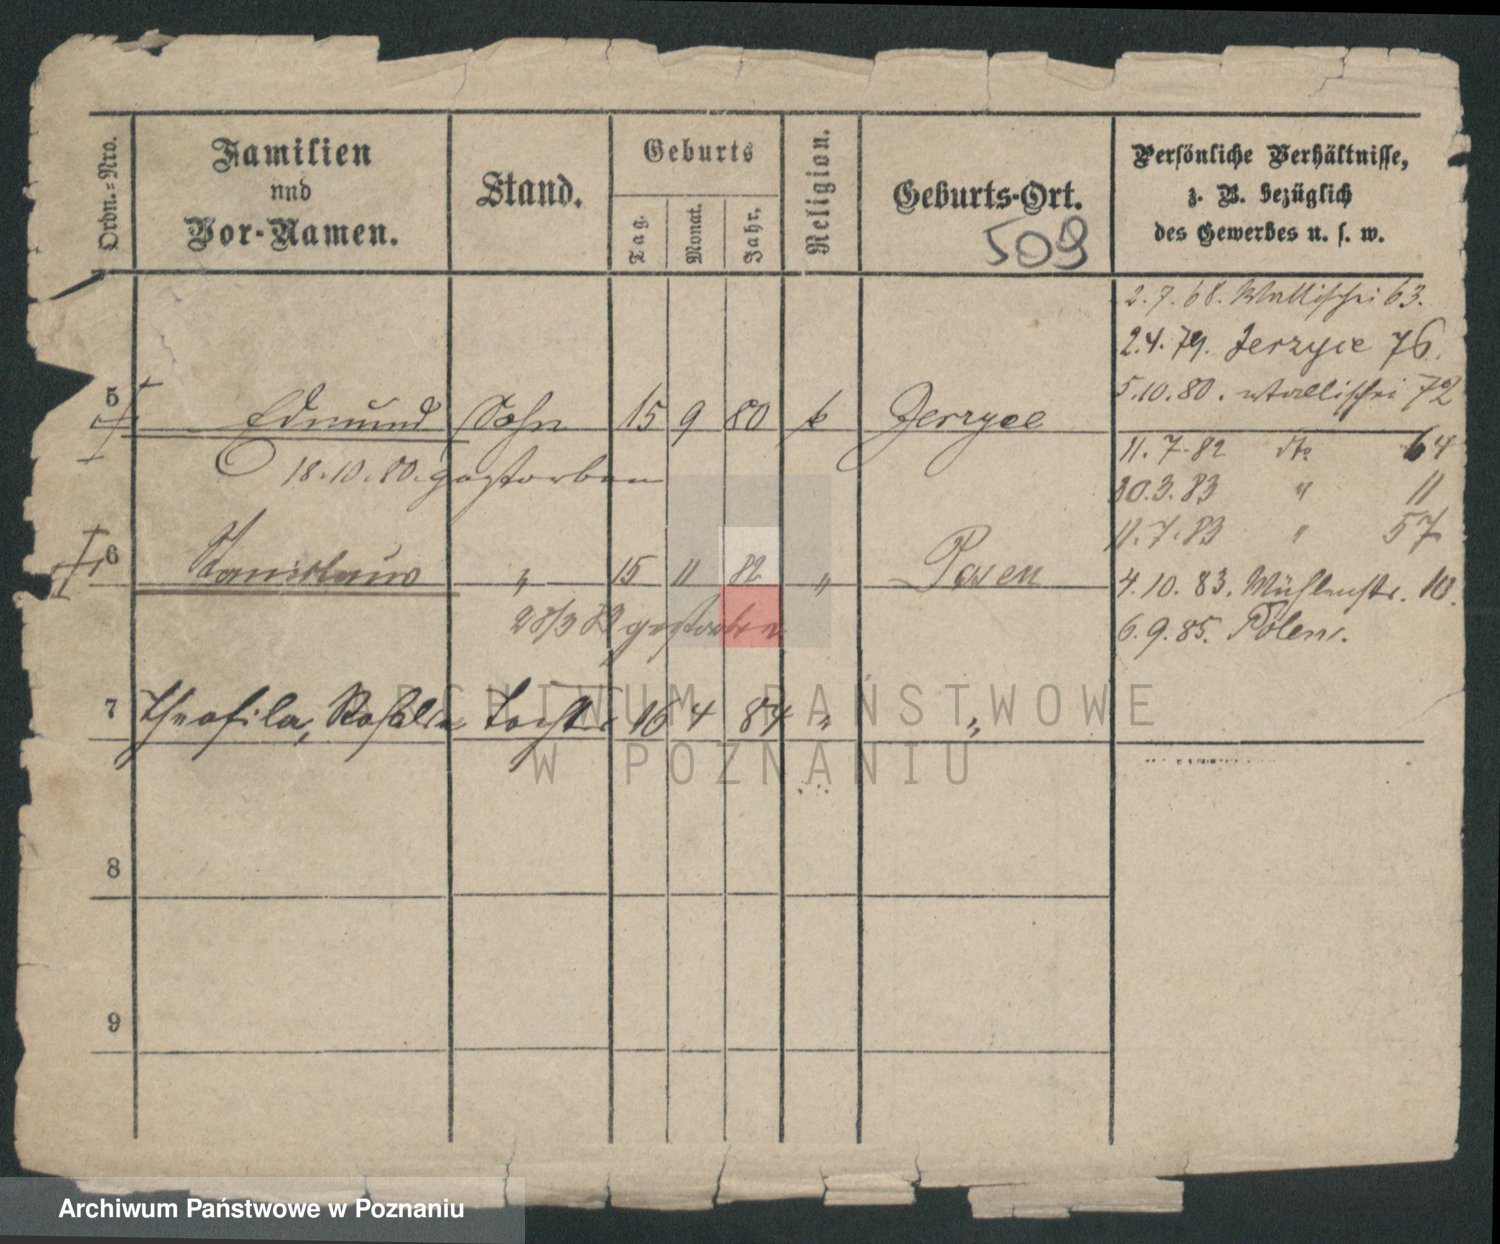 Ordn.=Nro.
Familien
und
Vor-Namen.
Stand.
Geburts
Tag.
Monat.
Jahr.
Religion.
Geburts-Ort.
509
Persönliche Verhältnisse,
z. B. bezüglich
des Gewerbes u. s. w.
2.7.68. Wallischei 63.
2.4.79. Jerzyce 76.
5.10.80. Wallischei 72
5 Edmund Sohn 15 9 80 k Jerzyce
11.7.82 dto 64
18.10.80. gestorben
30.3.83 " 11
11.7.83 " 57
6 Stanislaus " 15 11 82 " Posen
4.10.83. Mühlenstr. 10.
gestorben
6.9.85. Polen.
7 Theofila, Rosalia Tochter 16 4 84 " "
8
9
ARCHIWUM PAŃSTWOWE
W POZNANIU
Archiwum Państwowe w Poznaniu